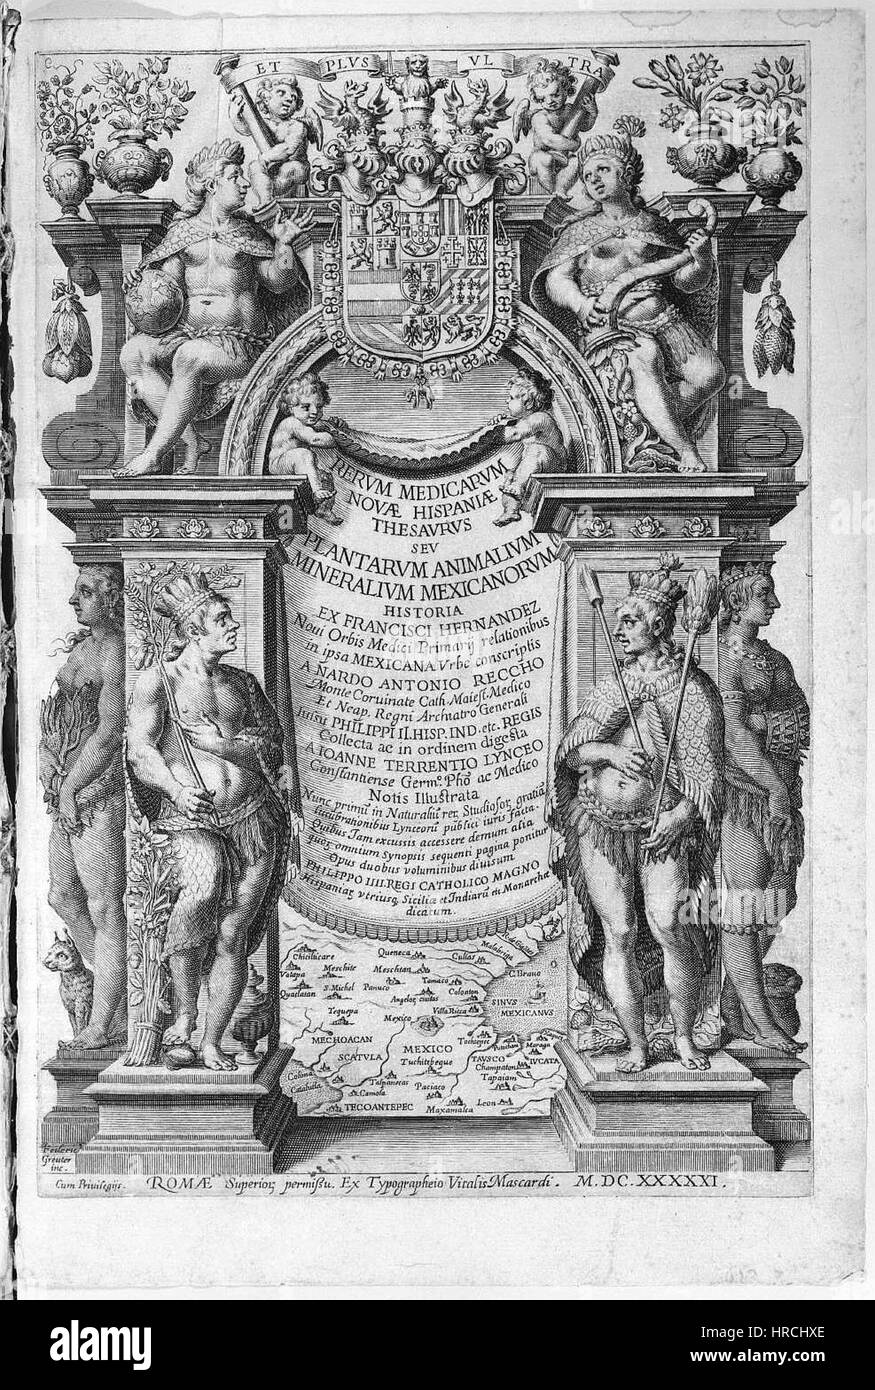 ET PLVS VL TRA
RERVM MEDICARVM
NOVÆ HISPANIÆ
THESAVRVS
SEV
PLANTARVM ANIMALIVM
MINERALIVM MEXICANORVM
HISTORIA
EX FRANCISCI HERNANDEZ
Noui Orbis Medici Primarij relationibus
in ipsa MEXICANA Vrbe conscriptis
A NARDO ANTONIO RECCHO
Monte Coruinate Cath. Maiest. Medico
Et Neap. Regni Archiatro Generali
Iussu PHILIPPI II. HISP. IND. etc. REGIS
Collecta ac in ordinem digesta
A IOANNE TERRENTIO LYNCEO
Constantiense Germº. Phº ac Medico
Notis Illustrata
Nunc primū in Naturaliū rer. Studiosor gratiā
lucubrationibus Lynceorū publici iuris facta.
Quibus Iam excussis accessere demum alia
quor omnium Synopsis sequenti pagina ponitur
Opus duobus voluminibus diuisum
PHILIPPO IIII. REGI CATHOLICO MAGNO
Hispaniar vtriusq Siciliæ et Indiarū etc Monarchæ
dicatum.
Chicilucare Queneca Cullas
Valepa Meschite Meschtan C. Brauo
Qualatan S. Michel Panuco Tamaco Colonton
Angelor ciuitas SINVS
Yeguepa Mexico Villa Ricca MEXICANVS
MECHOACAN Tochtepec
SCATVLA MEXICO TAVSCO IVCATA
Tuchitebeque Champaton
Colima Talpanecas Paciaco Tapaiam
Camola
TECOANTEPEC Maxamalca Leon
Federic
Greuter
inc.
Cum Priuilegijs. ROMÆ Superior permissu. Ex Typographeio Vitalis Mascardi. M. DC. XXXXXI.
alamy
Image ID: HRCHXE
www.alamy.com